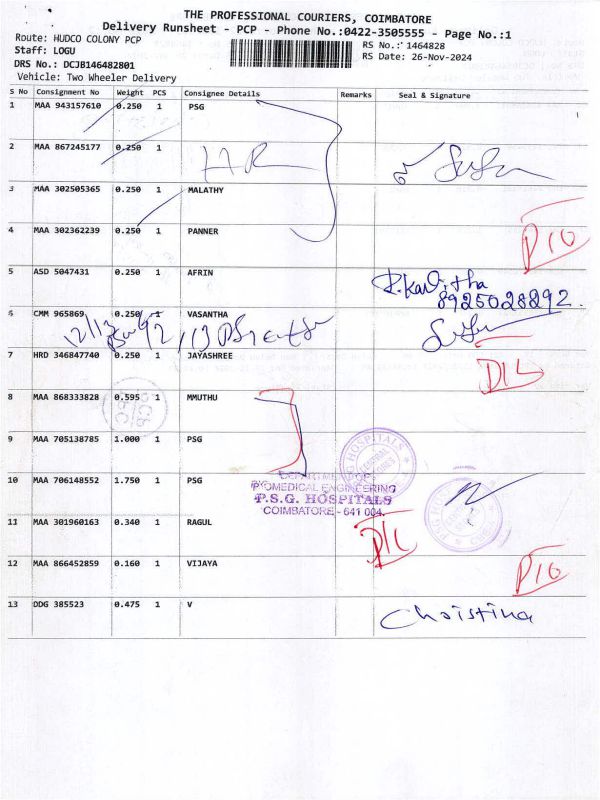 THE PROFESSIONAL COURIERS, COIMBATORE
Delivery Runsheet - PCP - Phone No.:0422-3505555 - Page No.:1
Route: HUDCO COLONY PCP
RS No.: 1464828
Staff: LOGU
RS Date: 26-Nov-2024
DRS No.: DCJB146482801
Vehicle: Two Wheeler Delivery
S No Consignment No Weight PCS Consignee Details Remarks Seal & Signature
1 MAA 943157610 0.250 1 PSG
2 MAA 867245177 0.250 1
3 MAA 302505365 0.250 1 MALATHY
4 MAA 302362239 0.250 1 PANNER
5 ASD 5047431 0.250 1 AFRIN
R.Kavitha
8925028292.
6 CMM 965869 0.250 1 VASANTHA
7 HRD 346847740 0.250 1 JAYASHREE
8 MAA 868333828 0.595 1 MMUTHU
9 MAA 705138785 1.000 1 PSG
10 MAA 706148552 1.750 1 PSG
DEPARTMENT OF
BIOMEDICAL ENGINEERING
P.S.G. HOSPITALS
COIMBATORE - 641 004.
11 MAA 301960163 0.340 1 RAGUL
12 MAA 866452859 0.160 1 VIJAYA
13 DDG 385523 0.475 1 V
Christina